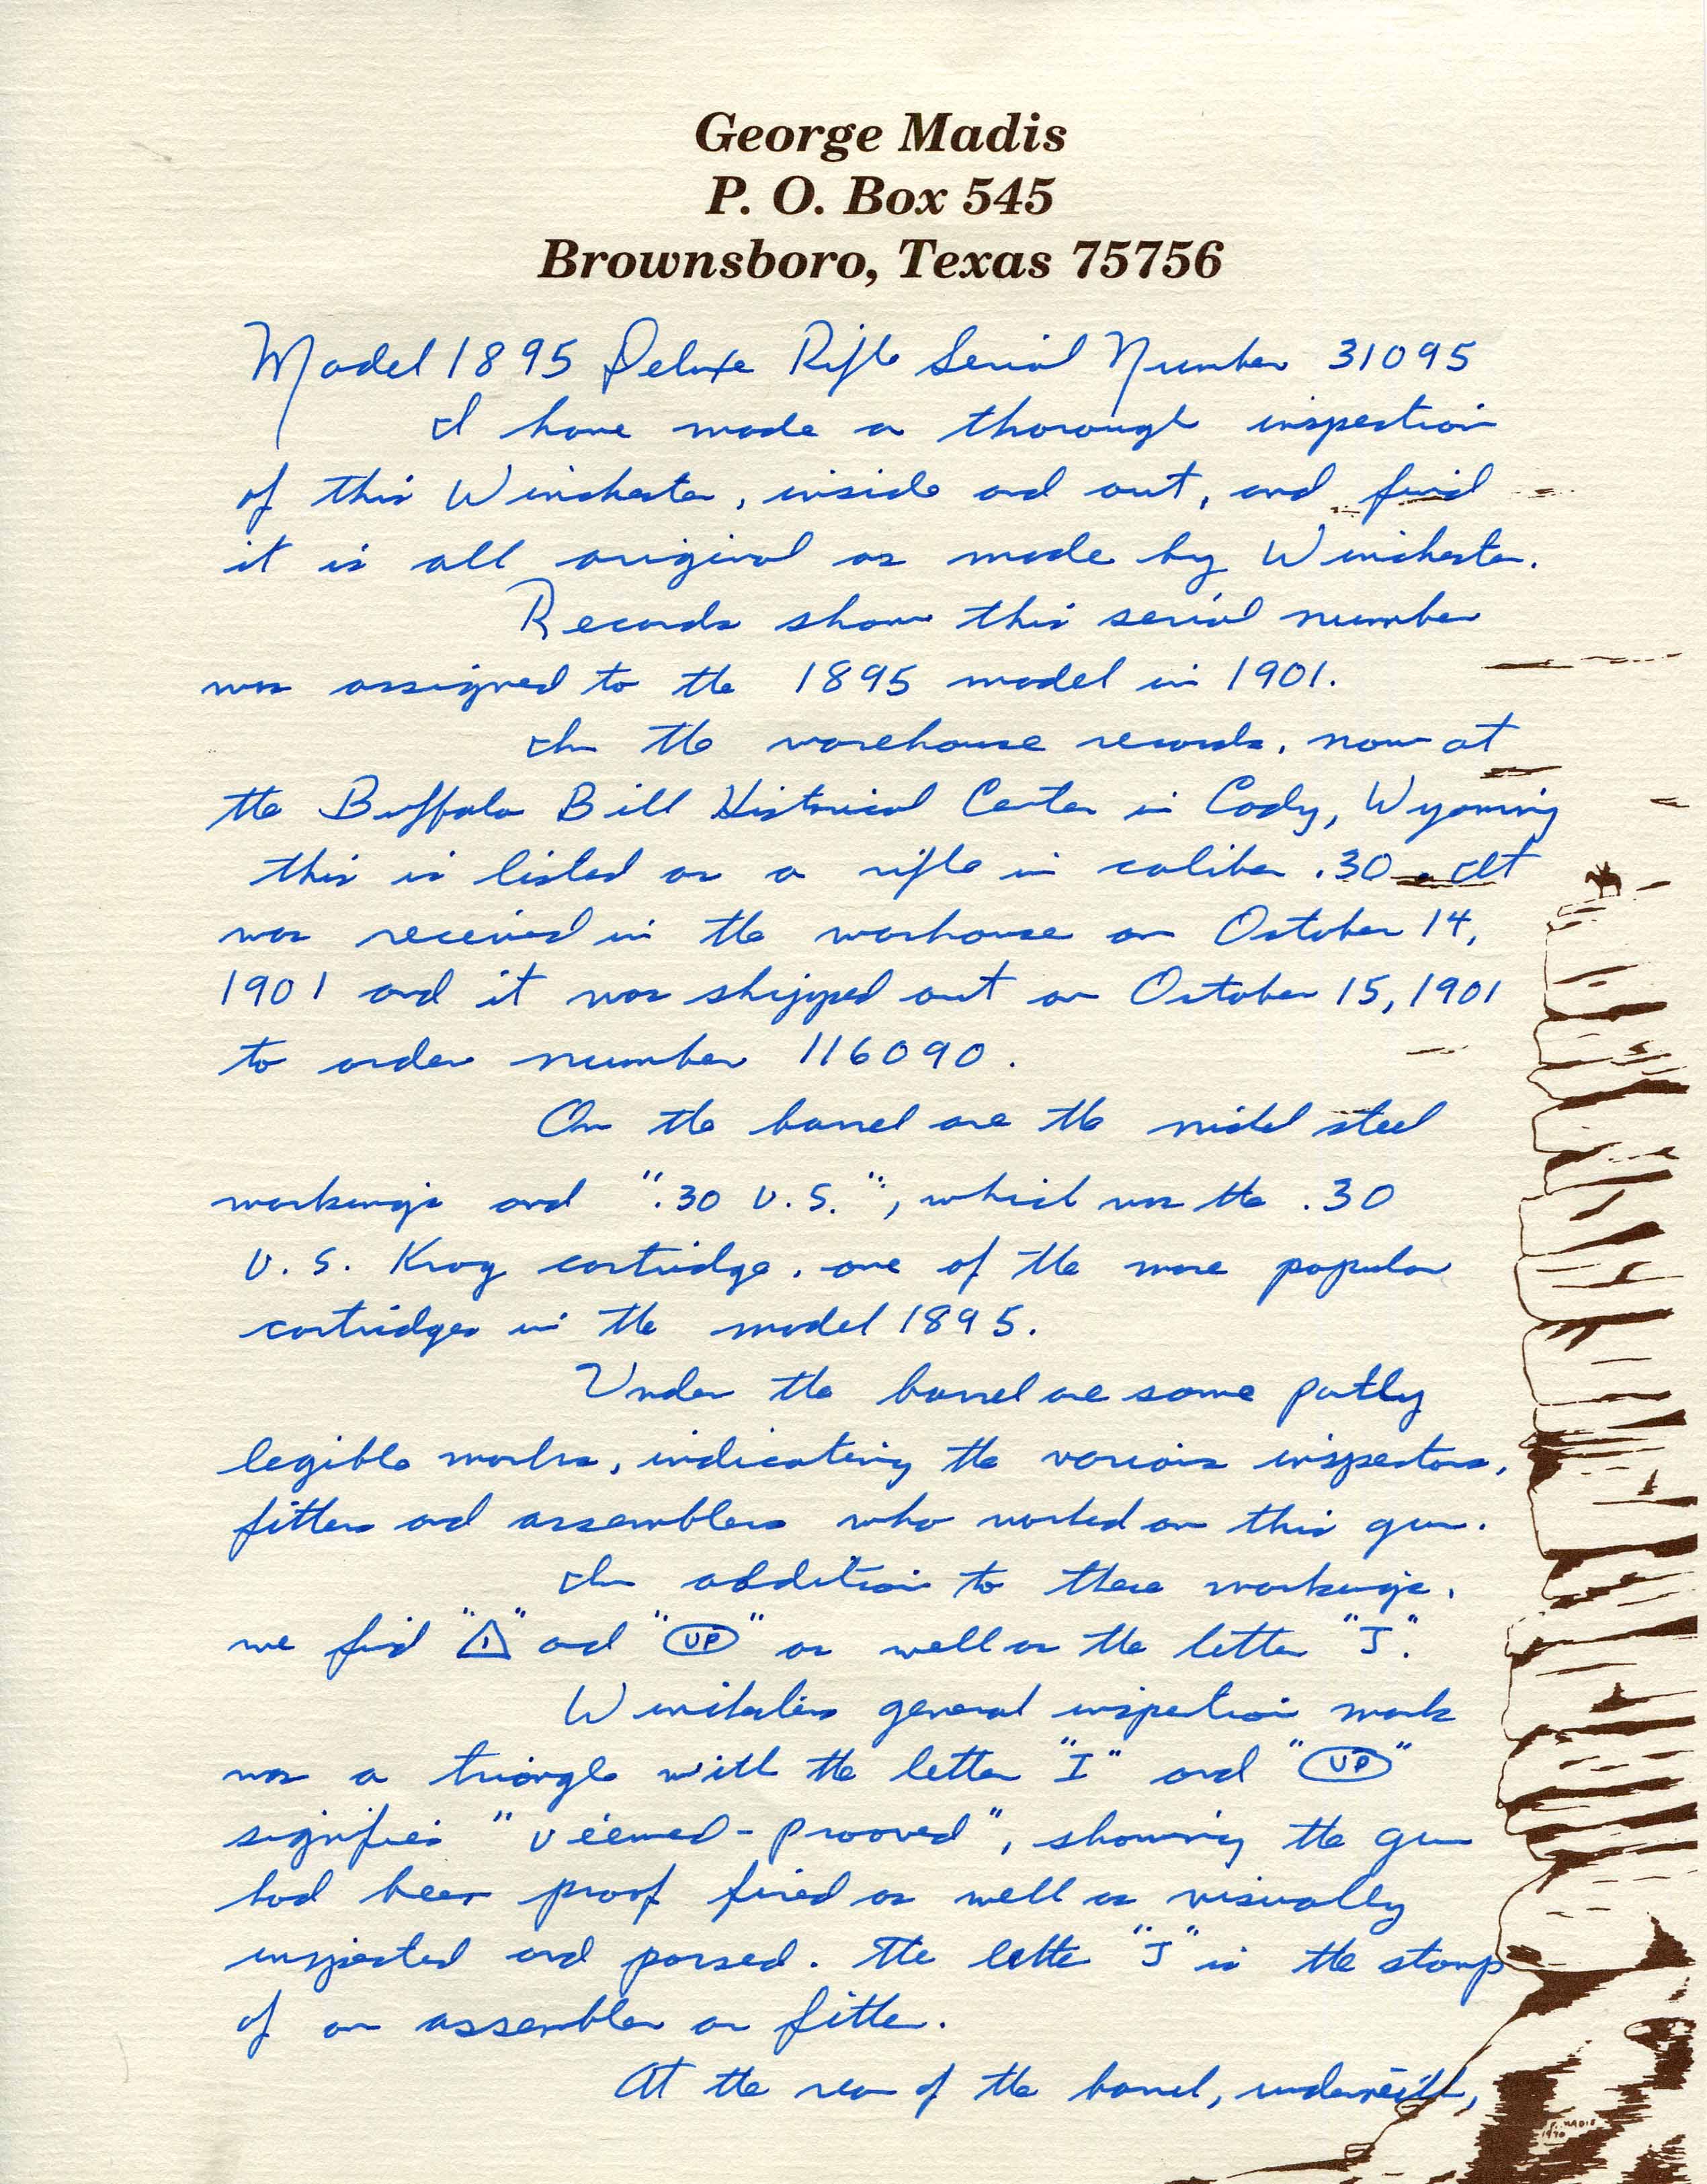 George Madis
P. O. Box 545
Brownsboro, Texas 75756
Model 1895 Deluxe Rifle Serial Number 31095
I have made a thorough inspection
of this Winchester, inside and out, and find
it is all original as made by Winchester.
Records show this serial number
was assigned to the 1895 model in 1901.
In the warehouse records, now at
the Buffalo Bill Historical Center in Cody, Wyoming
this is listed as a rifle in caliber .30. It
was received in the warhouse on October 14,
1901 and it was shipped out on October 15, 1901
to order number 116090.
On the barrel are the nickel steel
markings and ".30 U.S.", which was the .30
U.S. Krag cartridge, one of the more popular
cartridges in the model 1895.
Under the barrel are some partly
legible marks, indicating the various inspectors,
fitters and assemblers who worked on this gun.
In addition to these markings,
we find "I" and "VP" as well as the letter "J".
Winchesters general inspection mark
was a triangle with the letter "I" and "VP"
signifies "viewed-prooved", showing the gun
had been proof fired as well as visually
inspected and passed. The letter "J" is the stamp
of an assembler or fitter.
At the rear of the barrel, underneath,
MADIS
1970